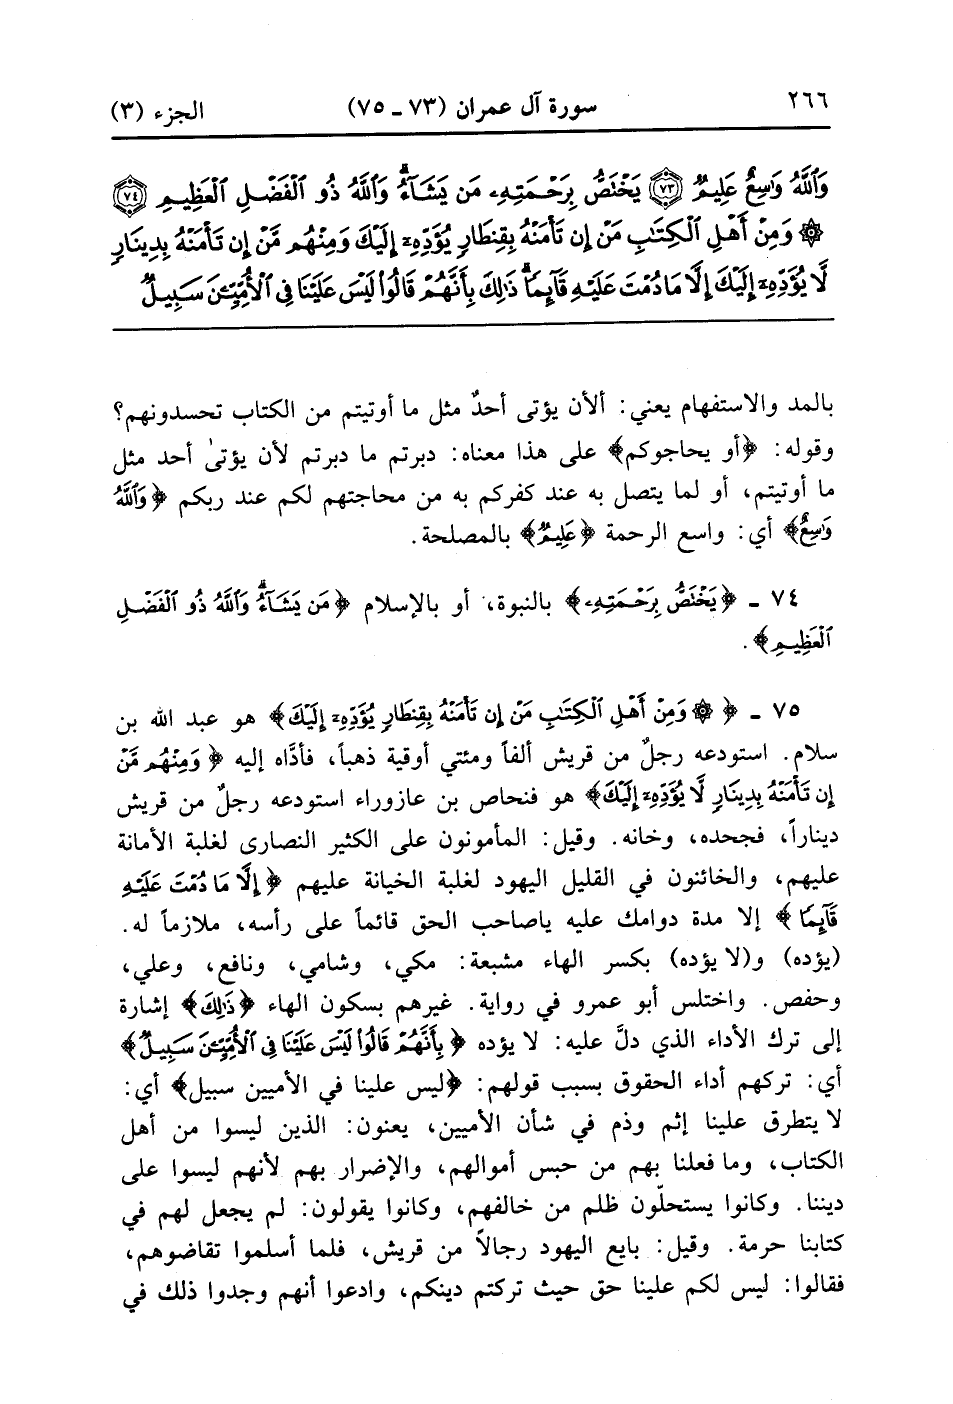 ٢٦٦ سورة آل عمران (٧٣ ـ ٧٥) الجزء (٣)
وَٱللَّهُ وَٰسِعٌ عَلِيمٌ ﴿٧٣﴾ يَخْتَصُّ بِرَحْمَتِهِۦ مَن يَشَآءُۗ وَٱللَّهُ ذُو ٱلْفَضْلِ ٱلْعَظِيمِ ﴿٧٤﴾
۞ وَمِنْ أَهْلِ ٱلْكِتَٰبِ مَنْ إِن تَأْمَنْهُ بِقِنطَارٍ يُؤَدِّهِۦٓ إِلَيْكَ وَمِنْهُم مَّنْ إِن تَأْمَنْهُ بِدِينَارٍ
لَّا يُؤَدِّهِۦٓ إِلَيْكَ إِلَّا مَا دُمْتَ عَلَيْهِ قَآئِمًاۗ ذَٰلِكَ بِأَنَّهُمْ قَالُوا۟ لَيْسَ عَلَيْنَا فِى ٱلْأُمِّيِّـۧنَ سَبِيلٌ
بالمد والاستفهام يعني: ألأن يؤتى أحدٌ مثل ما أوتيتم من الكتاب تحسدونهم؟
وقوله: ﴿أو يحاجوكم﴾ على هذا معناه: دبرتم ما دبرتم لأن يؤتىٰ أحد مثل
ما أوتيتم، أو لما يتصل به عند كفركم به من محاجتهم لكم عند ربكم ﴿وَٱللَّهُ
وَٰسِعٌ﴾ أي: واسع الرحمة ﴿عَلِيمٌ﴾ بالمصلحة.
٧٤ ـ ﴿يَخْتَصُّ بِرَحْمَتِهِۦ﴾ بالنبوة، أو بالإسلام ﴿مَن يَشَآءُۗ وَٱللَّهُ ذُو ٱلْفَضْلِ
ٱلْعَظِيمِ﴾.
٧٥ ـ ﴿۞ وَمِنْ أَهْلِ ٱلْكِتَٰبِ مَنْ إِن تَأْمَنْهُ بِقِنطَارٍ يُؤَدِّهِۦٓ إِلَيْكَ﴾ هو عبد الله بن
سلام. استودعه رجلٌ من قريش ألفاً ومئتي أوقية ذهباً، فأدَّاه إليه ﴿وَمِنْهُم مَّنْ
إِن تَأْمَنْهُ بِدِينَارٍ لَّا يُؤَدِّهِۦٓ إِلَيْكَ﴾ هو فنحاص بن عازوراء استودعه رجلٌ من قريش
ديناراً، فجحده، وخانه. وقيل: المأمونون على الكثير النصارى لغلبة الأمانة
عليهم، والخائنون في القليل اليهود لغلبة الخيانة عليهم ﴿إِلَّا مَا دُمْتَ عَلَيْهِ
قَآئِمًا﴾ إلا مدة دوامك عليه ياصاحب الحق قائماً على رأسه، ملازماً له.
(يؤده) و(لا يؤده) بكسر الهاء مشبعة: مكي، وشامي، ونافع، وعلي،
وحفص. واختلس أبو عمرو في رواية. غيرهم بسكون الهاء ﴿ذَٰلِكَ﴾ إشارة
إلى ترك الأداء الذي دلَّ عليه: لا يؤده ﴿بِأَنَّهُمْ قَالُوا۟ لَيْسَ عَلَيْنَا فِى ٱلْأُمِّيِّـۧنَ سَبِيلٌ﴾
أي: تركهم أداء الحقوق بسبب قولهم: ﴿ليس علينا في الأميين سبيل﴾ أي:
لا يتطرق علينا إثم وذم في شأن الأميين، يعنون: الذين ليسوا من أهل
الكتاب، وما فعلنا بهم من حبس أموالهم، والإضرار بهم لأنهم ليسوا على
ديننا. وكانوا يستحلّون ظلم من خالفهم، وكانوا يقولون: لم يجعل لهم في
كتابنا حرمة. وقيل: بايع اليهود رجالاً من قريش، فلما أسلموا تقاضوهم،
فقالوا: ليس لكم علينا حق حيث تركتم دينكم، وادعوا أنهم وجدوا ذلك في